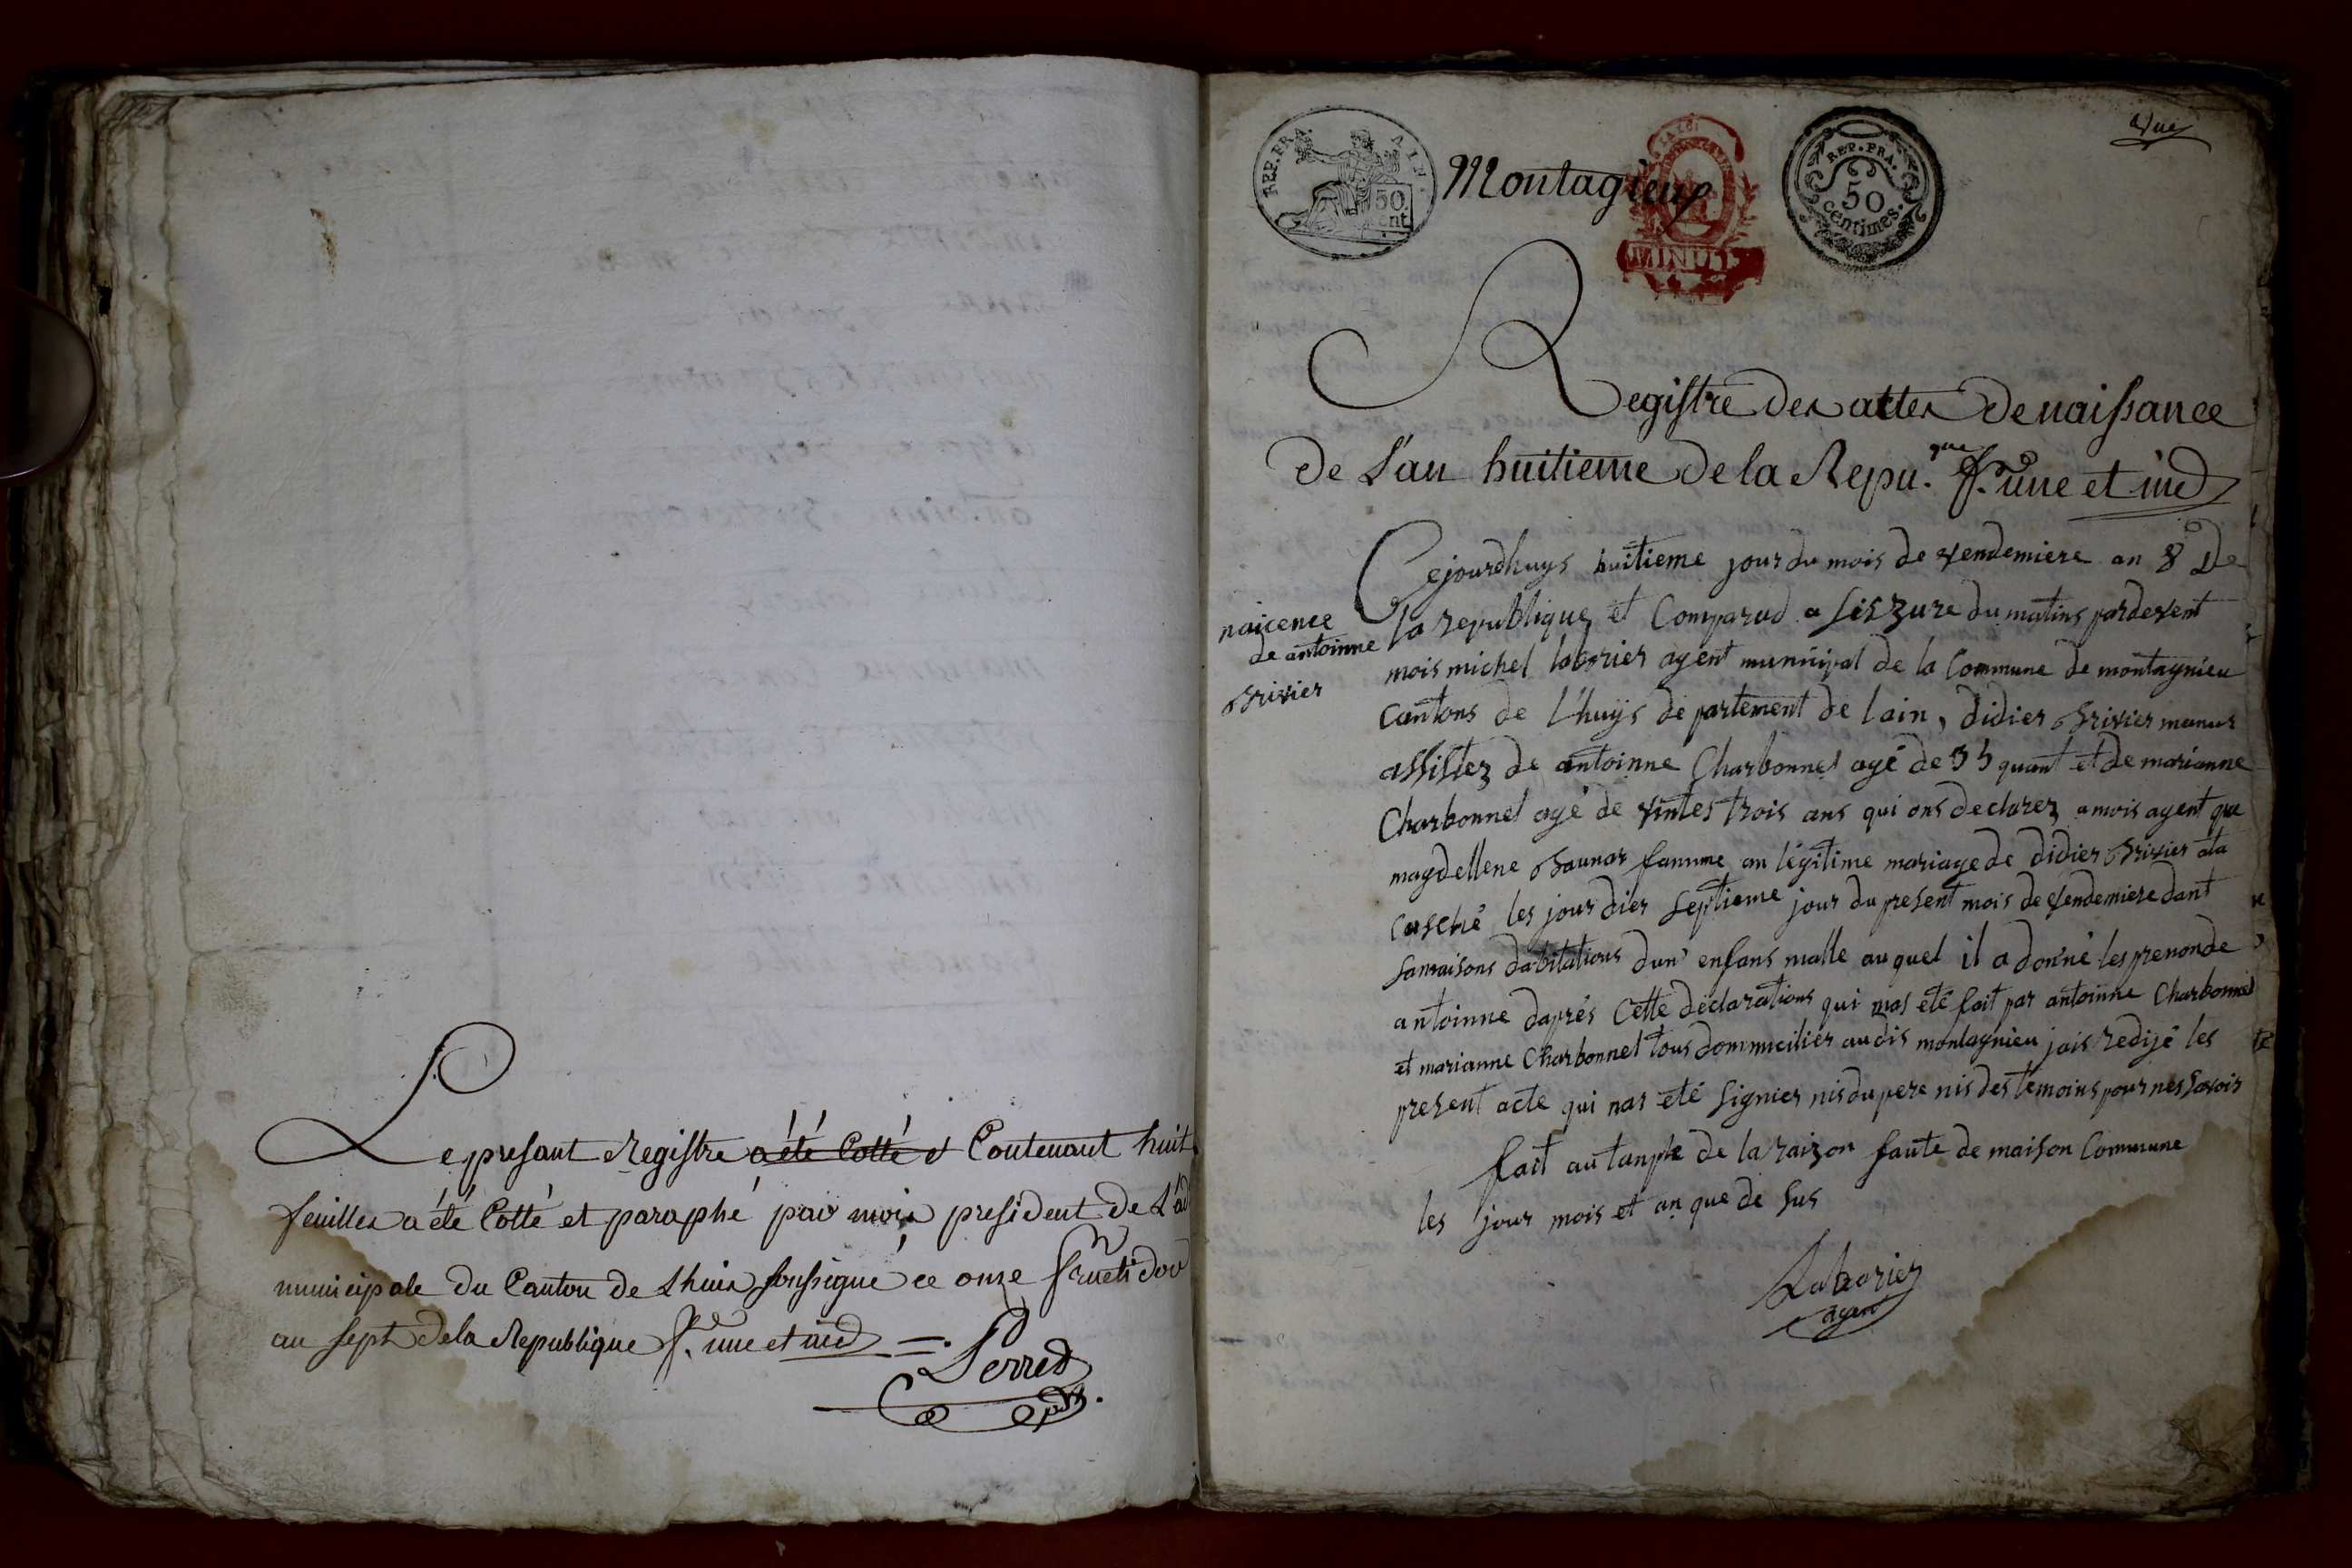 Le presant Registre a été Cotté et Contenant huit
feuilles a été Cotté et paraphé par mois president de L'ad
municipale du Canton de Lhuis soussigné ce onze fructidor
an sept de la Republique f. une et ind
Perret
pdt.
REP. FRA.
AIN.
50.
cent
Montagieux
LA LOI
MINUTE
REP. FRA.
50
centimes.
une
Registre des attes de naissance
de L'an huitieme de la Repu.que f. une et ind
naicence
de antoinne
Brivier
Cejourdhuys huitieme jour du mois de vendemiere an 8 De
la republique et Comparud a siszure du matins pardevent
mois michel laborier agent municipal de la Commune de montagnieu
Cantons de Lhuys departement de lain, didier Brivier
assistez de antoinne Charbonnel agé de 35 quant et de marianne
Charbonnel agé de vintes trois ans qui ons declarez a mois agent que
magdellene Baunar famme an légitime mariage de didier Brivier ata
cusché les jour dier septieme jour du present mois de vendemiere dant
samaisons dabitations dun enfans malle auquel il a donné les prenon de
antoinne daprés Cette déclarations qui mas eté fait par antoinne Charbonnel
et marianne Charbonnel tous dommicilier audis montagnieu jais redijé les
present acte qui nas eté signier nis du pere nis des témoins pour nes savoir
fait au tample de la raizon faute de maison Commune
les jour mois et an que de sus
Laborier
agent